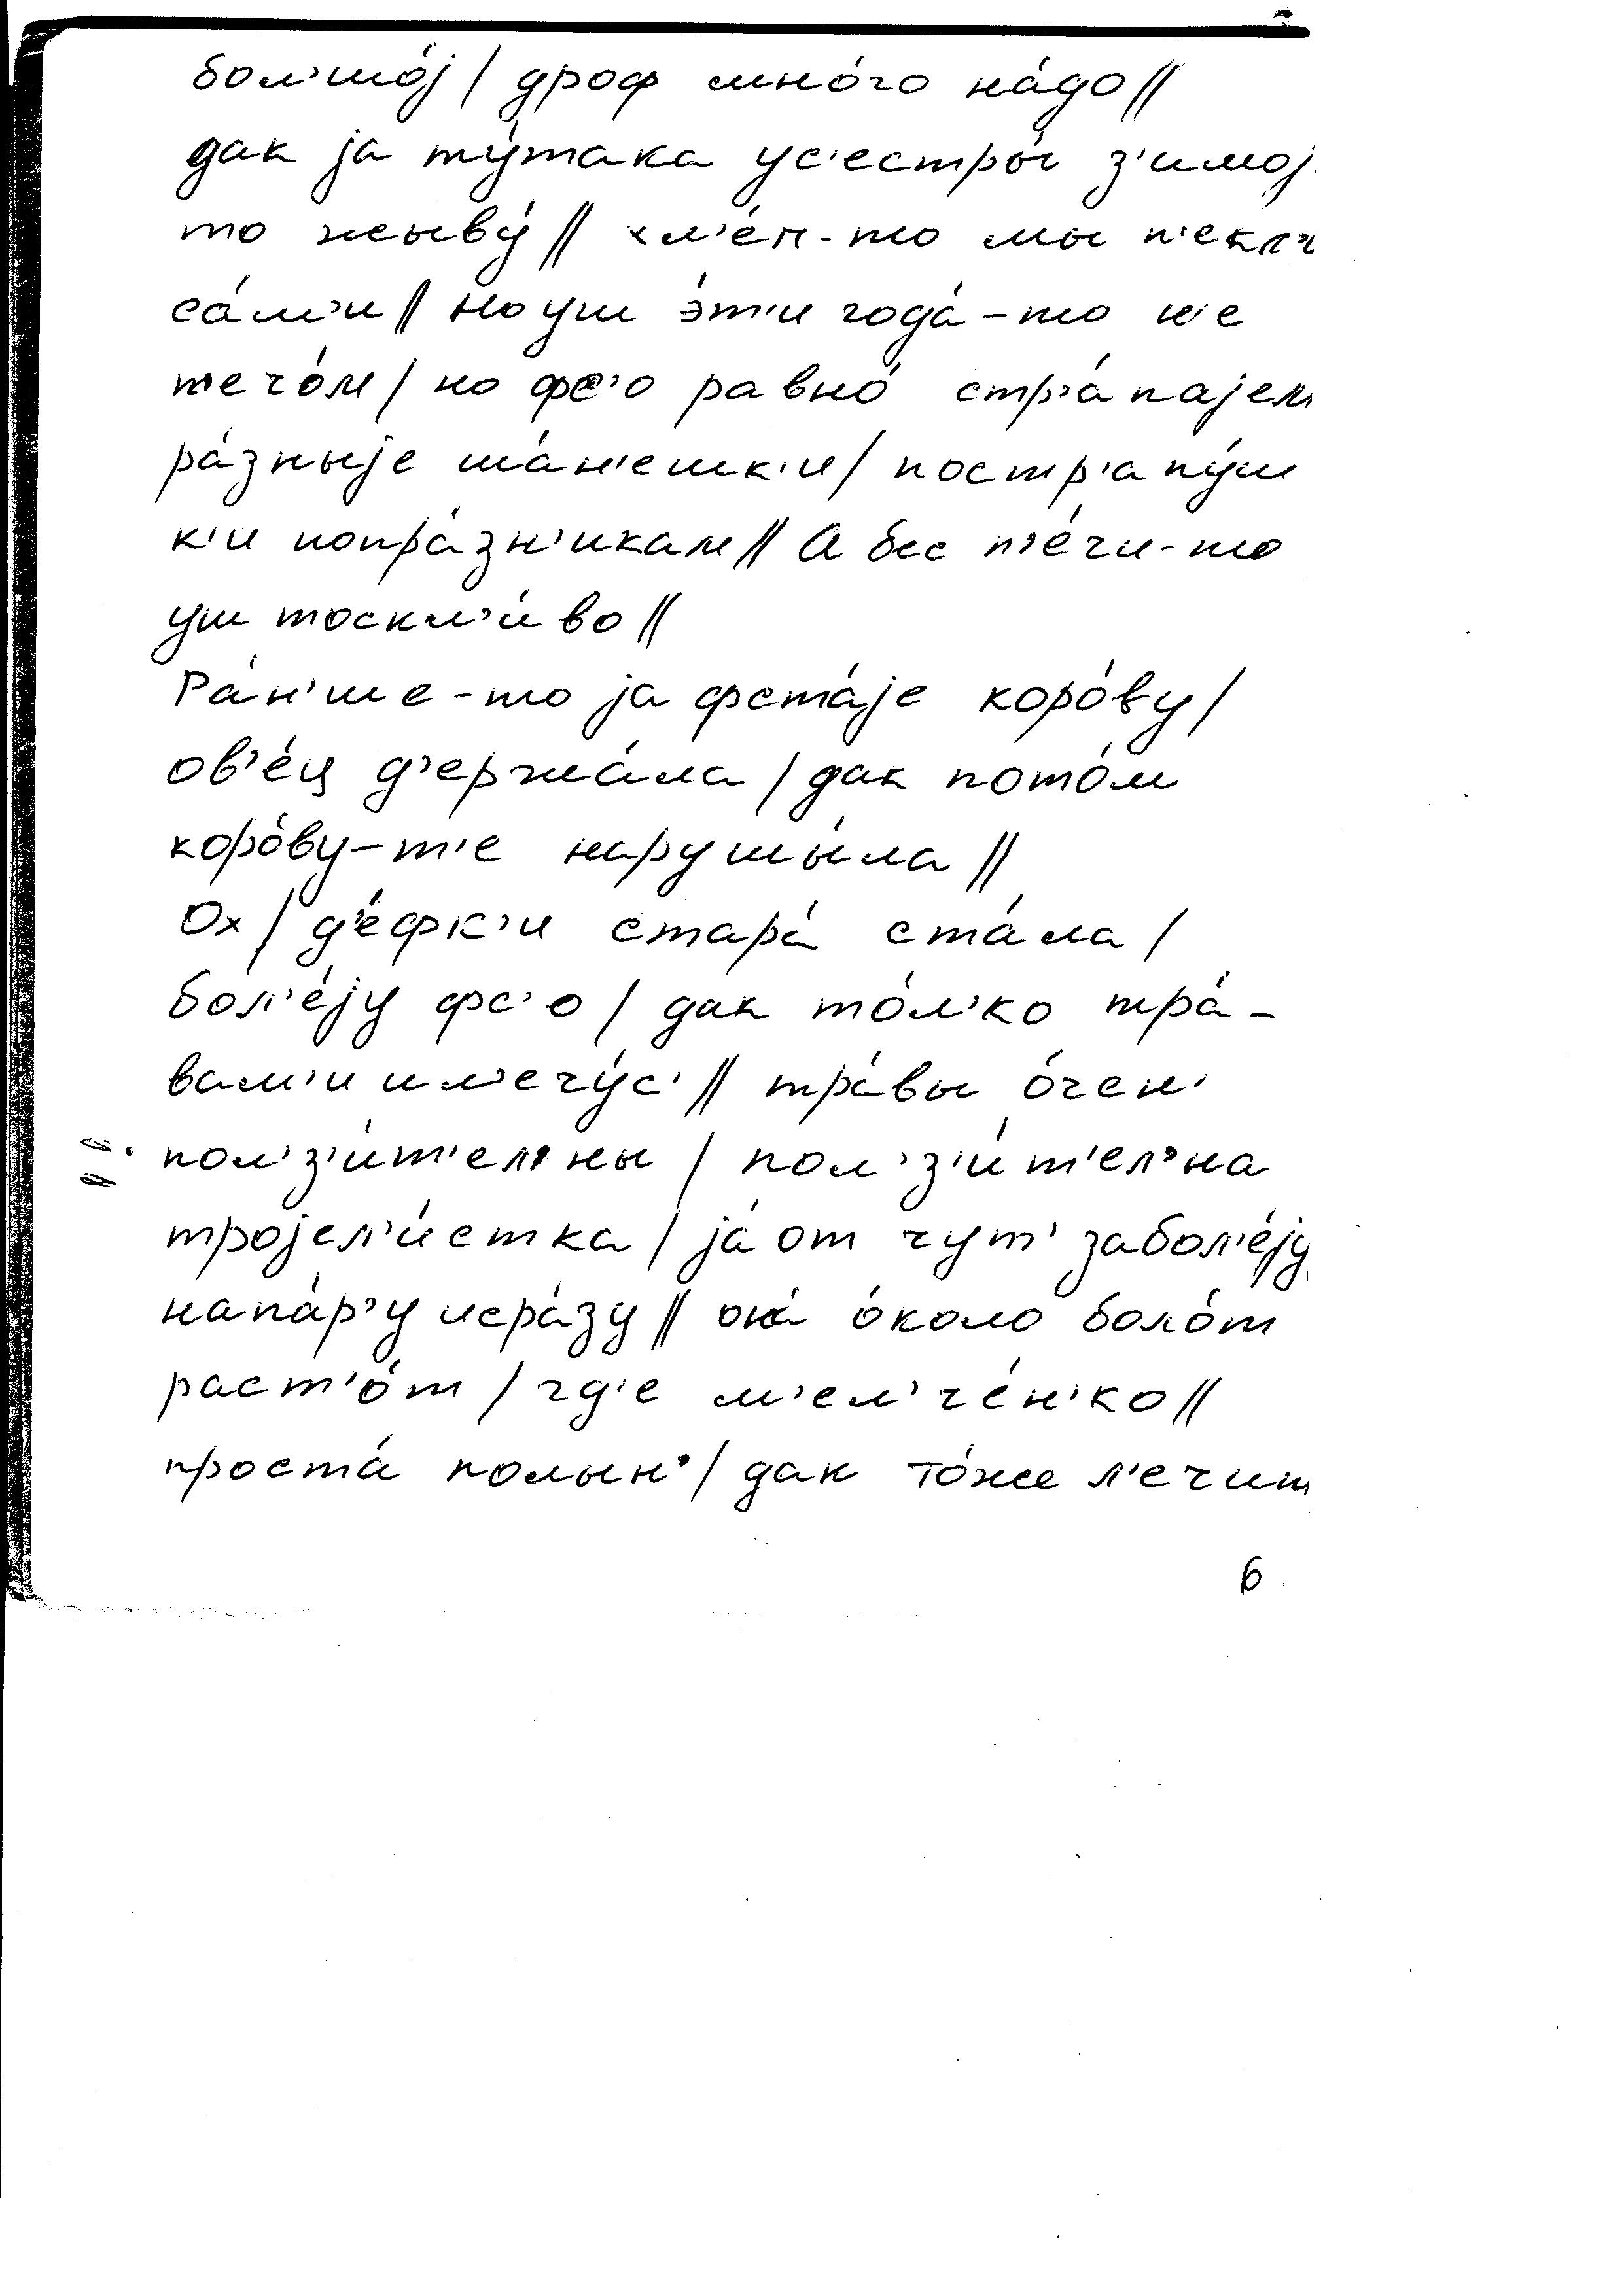 бол'шо́j / дроф мно́го на́до //
дак jа ту́така ус'естры́ з'имоj
то жыву́ // хл'е́п-то мы п'екл'и
са́м'и // но уш э́т'и года́-то н'е
п'ечо́м / но фс'о равно́ стр'а́паjем
ра́зныjе ша́н'ешк'и / постр'апу́ш
к'и попра́зн'икам // А бес п'е́чи-то
уш тоскл'и́во //
Ра́н'ше-то jа фста́jе коро́ву /
ов'е́ц д'ержа́ла / дак пото́м
коро́ву-т'е наруши́ла //
Ох / д'е́фк'и стара́ ста́ла /
бол'е́jу фс'о / дак то́л'ко тра́-
вам'и и л'ечу́с' // тра́вы о́чен'
пол'з'и́т'ел'ны / пол'з'и́т'ел'на
троjел'и́стка / jа́ от чут' забол'е́jу
напа́р'у исра́зу // она́ о́коло боло́т
раст'о́т / гд'е м'ел'че́н'ко //
проста́ полын' / дак то́же л'ечит
6